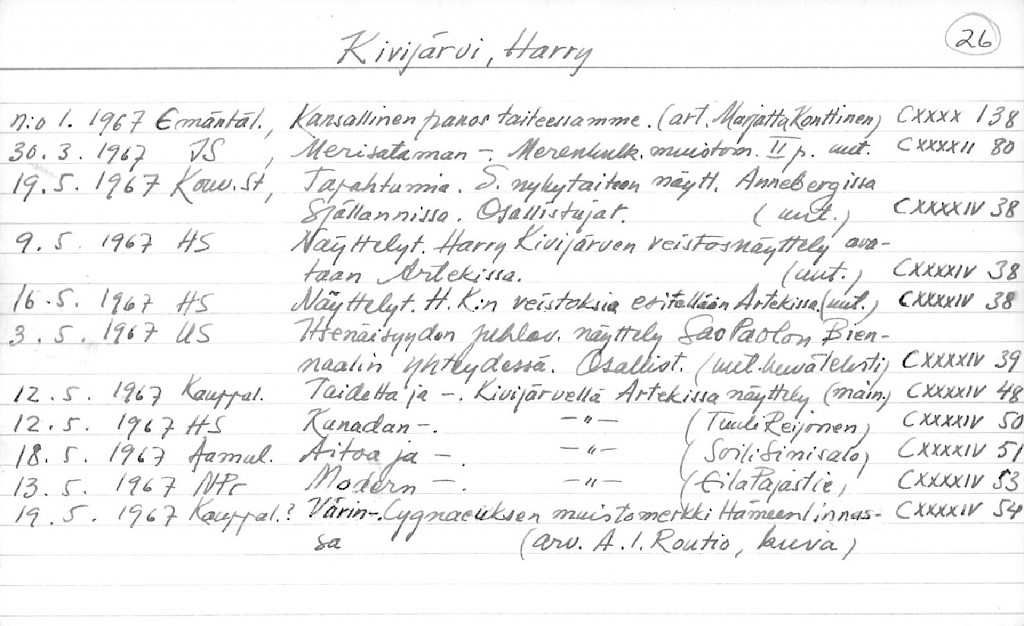 26
Kivijärvi, Harry
n:o 1. 1967 Emäntäl., Kansallinen panos taiteessamme. (art. Marjatta Konttinen) CXXXX 138
30.3. 1967 IS, Merisataman -. Merenkulk. muistom. II p. uut. CXXXXII 80
19.5. 1967 Kouv.St, Tapahtumia. S. nykytaiteen näytt. Annebergissa
Själlannissa. Osallistujat. (uut.) CXXXXIV 38
9.5. 1967 HS Näyttelyt. Harry Kivijärven veistosnäyttely ava-
taan Artekissa. (uut.) CXXXXIV 38
16.5. 1967 HS Näyttelyt. H.K:n veistoksia esitellään Artekissa (uut.) CXXXXIV 38
3.5. 1967 US Itsenäisyyden juhlav. näyttely Sao Paolon Bien-
naalin yhteydessä. Osallist. (uut. kuvateksti) CXXXXIV 39
12.5. 1967 Kauppal. Taidetta ja -. Kivijärvellä Artekissa näyttely (main.) CXXXXIV 48
12.5. 1967 HS Kanadan -. -"- (Tuuli Reijonen) CXXXXIV 50
18.5. 1967 Aamul. Aitoa ja -. -"- (Soili Sinisalo) CXXXXIV 51
13.5. 1967 NPr Modern -. -"- (Eila Pajastie) CXXXXIV 53
19.5. 1967 Kauppal.? Värin-. Cygnaeuksen muistomerkki Hämeenlinnas-
sa (arv. A.I. Routio, kuvia) CXXXXIV 54